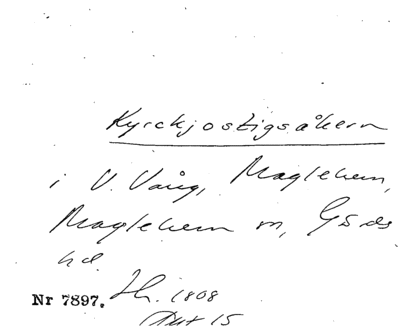 Kyrckjostigsåkern
i V. Vång, Maglehem,
Maglehem sn, Gärds
hd.
Nr 7897. Jh. 1808
Akt 15